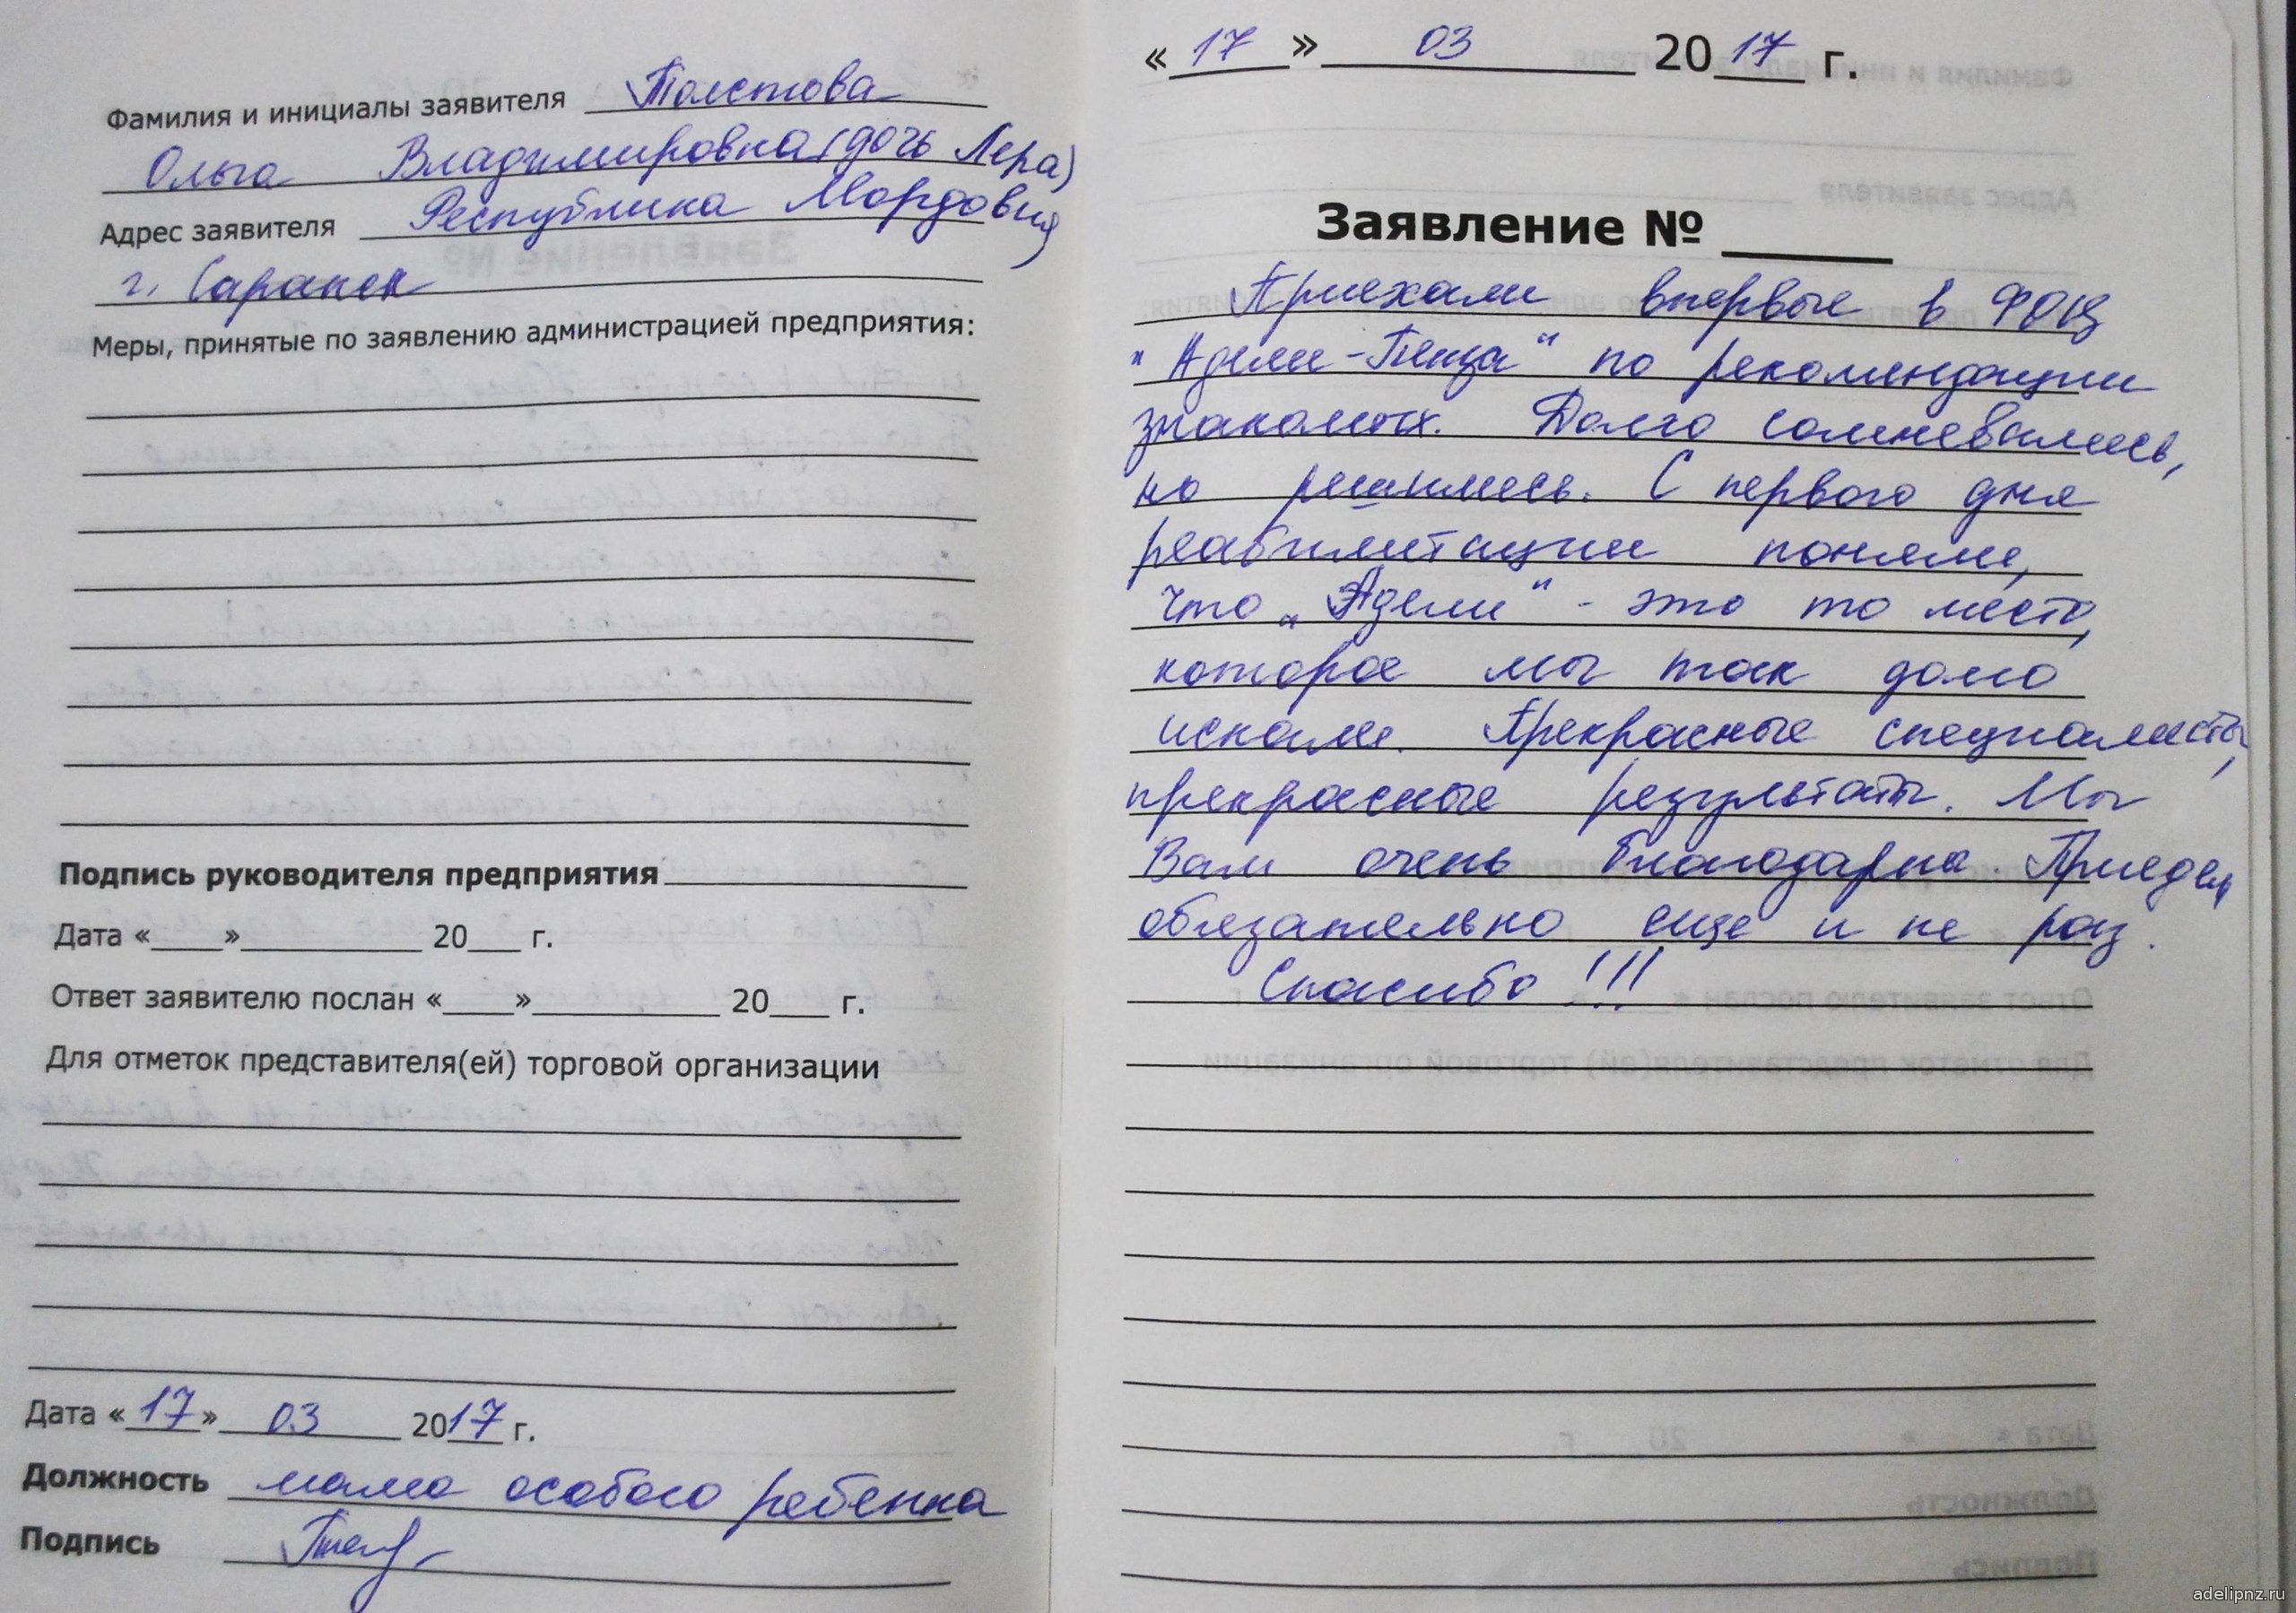 Фамилия и инициалы заявителя Толстова
Ольга Владимировна (дочь Лера)
Адрес заявителя Республика Мордовия
г. Саранск
Меры, принятые по заявлению администрацией предприятия:
Подпись руководителя предприятия
Дата «____»____________ 20___ г.
Ответ заявителю послан «____»____________ 20___ г.
Для отметок представителя(ей) торговой организации
Дата «17» 03 2017 г.
Должность мама особого ребенка
Подпись
«17» 03 2017 г.
Заявление № ______
Приехали впервые в ФОЦ
"Адели-Пенза" по рекомендации
знакомых. Долго сомневались,
но решились. С первого дня
реабилитации поняли,
что "Адели" - это то место,
которое мы так долго
искали. Прекрасные специалисты,
прекрасные результаты. Мы
Вам очень благодарны. Приедем
обязательно еще и не раз.
Спасибо!!!
adelipnz.ru